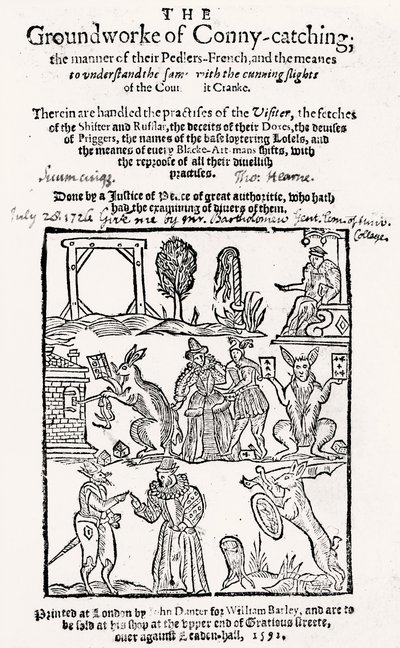 THE
Groundworke of Conny-catching;
the manner of their Pedlers-French, and the meanes
to vnderstand the same with the cunning slights
of the Cou it Cranke.
Therein are handled the practises of the Visiter, the fetches
of the Shifter and Rufflar, the deceits of their Doxes, the deuises
of Priggers, the names of the base loytering Losels, and
the meanes of euery Blacke-Art-mans shifts, with
the reproofe of all their diuellish
practises.
Tho: Hearne.
Done by a Justice of Peace of great authoritie, who hath
had the examining of diuers of them.
July 28. 1724 Give me by Mr. Bartholomew Gent. Com. of Univ.
College.
Printed at London by John Danter for William Barley, and are to
be sold at his shop at the vpper end of Gratious streete,
ouer against Leaden-hall, 1592.